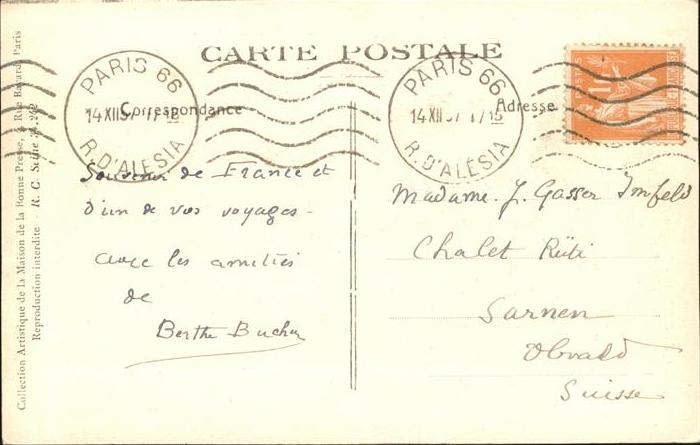 CARTE POSTALE
Correspondance
Adresse
PARIS 66
14 XII 37 17 15
R. D'ALESIA
PARIS 66
14 XII 37 17 15
R. D'ALESIA
POSTES
1F
Souvenir de France et
d'un de vos voyages -
avec les amitiés
de
Berthe Bucher
Madame J. Gasser Imfeld
Chalet Rüti
Sarnen
Obwald
Suisse
Collection Artistique de la Maison de la Bonne Presse, 5 Rue Bayard, Paris
Reproduction interdite - R. C. Seine